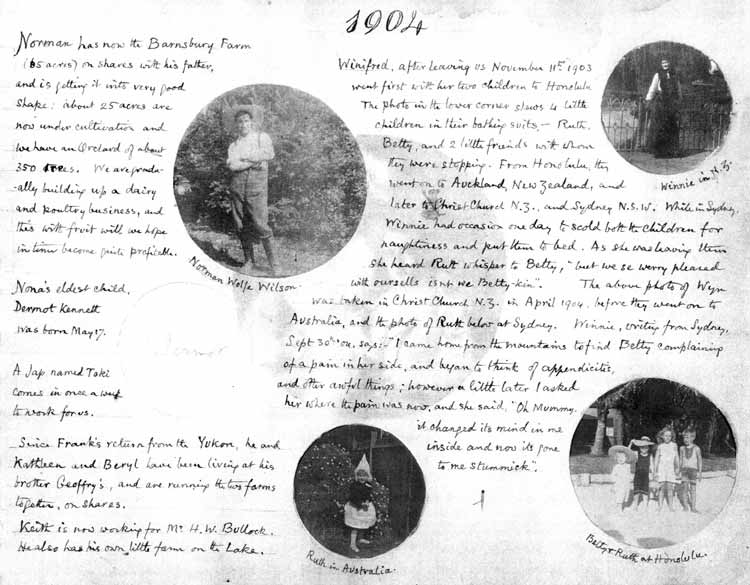 1904
Norman has now the Barnsbury Farm
(65 acres) on shares with his father,
and is getting it into very good
shape: about 25 acres are
now under cultivation and
we have an Orchard of about
350 trees. We are gradu-
-ally building up a dairy
and poultry business, and
this with fruit will we hope
in time become quite profitable.
Norman Wolfe Wilson.
Nona's eldest child,
Dermot Kennett
was born May 17.
Dermot
A Jap named Toki
comes in once a week
to work for us.
Since Frank's return from the Yukon, he and
Kathleen and Beryl have been living at his
brother Geoffry's, and are running the two farms
together, on shares.
Keith is now working for Mr. H. W. Bullock.
He also has his own little farm on the Lake.
Winifred, after leaving us November 11th 1903
went first with her two children to Honolulu
The photo in the lower corner shows 4 little
children in their bathing suits, – Ruth,
Betty, and 2 little friends with whom
they were stopping. From Honolulu, they
went on to Auckland, New Zealand, and
later to Christ Church N.Z., and Sydney N.S.W. While in Sydney,
Winnie had occasion one day to scold both the children for
naughtiness and put them to bed. As she was leaving them
she heard Ruth whisper to Betty, "but we se worry pleased
with ourselfs isnt we Betty-kin". The above photo of Wyn
was taken in Christ Church N.Z. in April 1904, before they went on to
Australia, and the photo of Ruth below at Sydney. Winnie, writing from Sydney,
Sept 30th '04, says:- "I came home from the mountains to find Betty complaining
of a pain in her side, and began to think of appendicitis,
and other awful things; however a little later I asked
her where the pain was now, and she said, "Oh Mummy,
it changed its mind in me
inside and now its gone
to me stummick".
Winnie in N.Z.
Ruth in Australia.
Betty & Ruth at Honolulu.